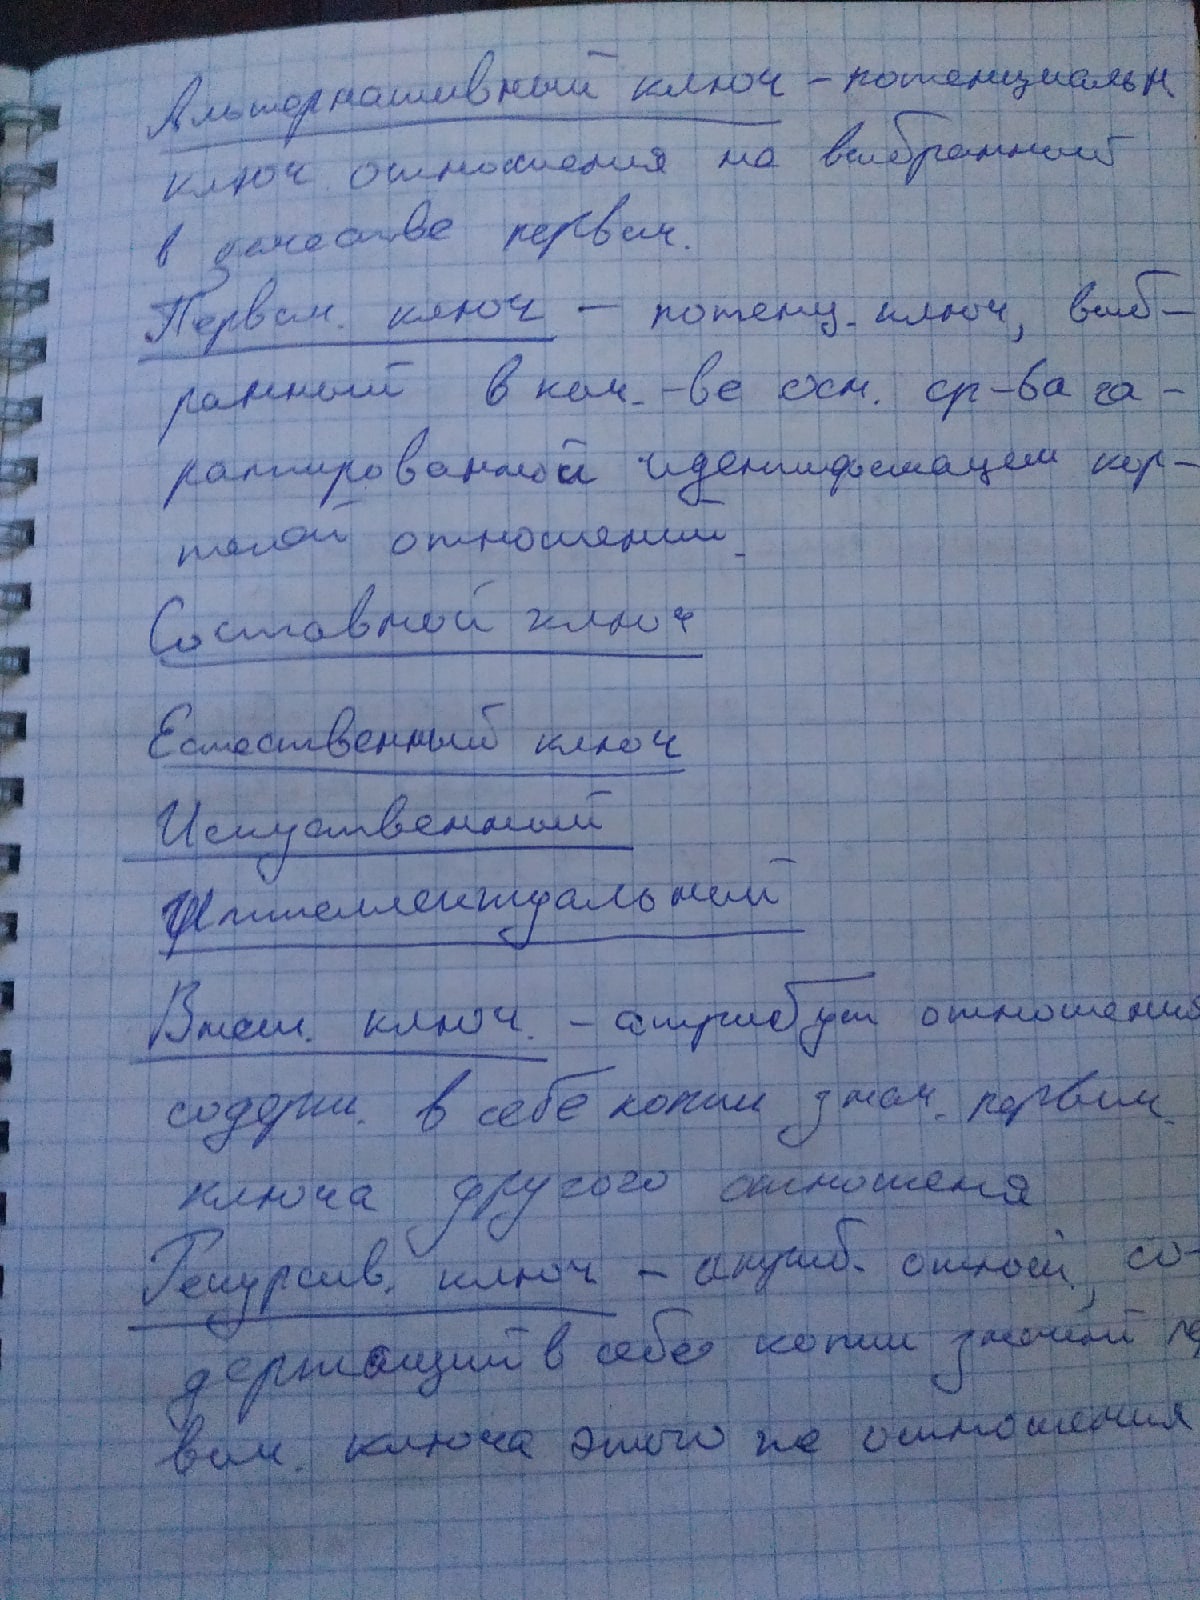 Альтернативный ключ – потенциальн
ключ отношения не выбранный
в качестве первич.
Первич. ключ – потенц. ключ, выб-
ранный в кач.-ве осн. ср-ва га-
рантированной идентификации кор-
тежей отношений.
Составной ключ
Естественный ключ
Искуственный
Интеллектуальный
Внеш. ключ. – атрибут отношения
содерж. в себе копии знач. первич.
ключа другого отношеня
Рекурсив. ключ – атриб. отной, со-
держащий в себе копии значний пе
вич. ключа этого же отношения